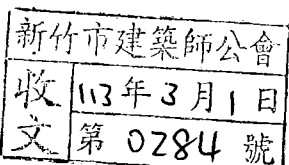 新竹市建築師公會
收文
113年3月1日
第0284號